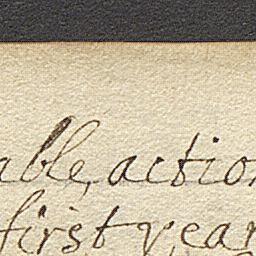 able, actio
first year